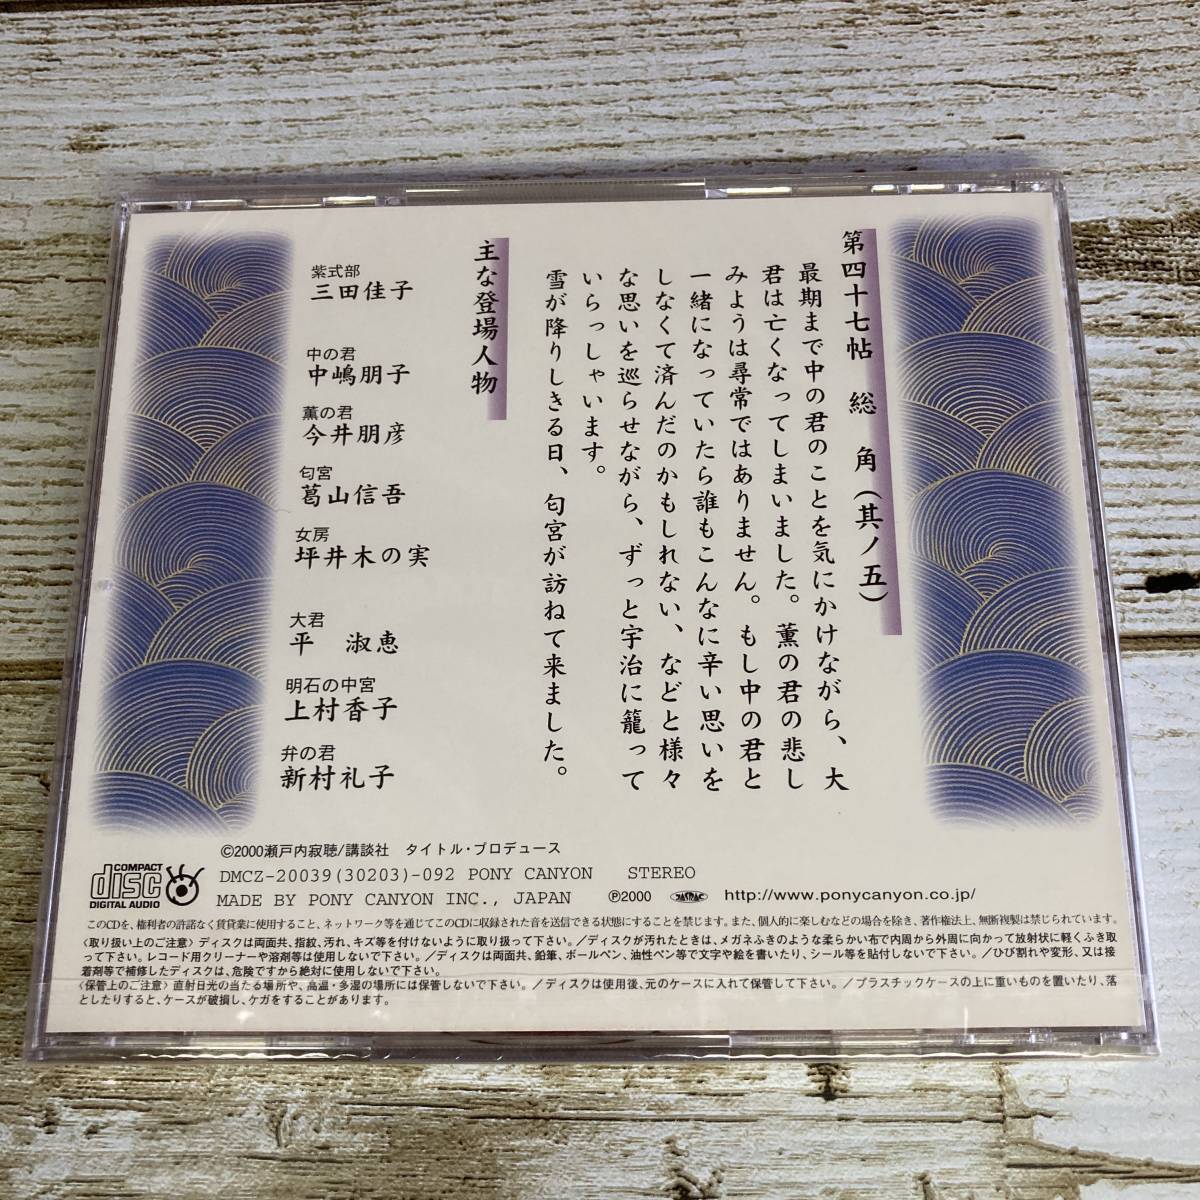 第四十七帖　総　角（其ノ五）
最期まで中の君のことを気にかけながら、大
君は亡くなってしまいました。薫の君の悲し
みようは尋常ではありません。もし中の君と
一緒になっていたら誰もこんなに辛い思いを
しなくて済んだのかもしれない、などと様々
な思いを巡らせながら、ずっと宇治に籠って
いらっしゃいます。
雪が降りしきる日、匂宮が訪ねて来ました。
主な登場人物
紫式部
三田佳子
中の君
中嶋朋子
薫の君
今井朋彦
匂宮
葛山信吾
女房
坪井木の実
大君
平　淑恵
明石の中宮
上村香子
弁の君
新村礼子
©2000瀬戸内寂聴/講談社　タイトル・プロデュース
COMPACT disc DIGITAL AUDIO
DMCZ-20039(30203)-092 PONY CANYON　STEREO
MADE BY PONY CANYON INC., JAPAN　℗2000　JASRAC　http://www.ponycanyon.co.jp/
このCDを、権利者の許諾なく賃貸業に使用すること、ネットワーク等を通じてこのCDに収録された音を送信できる状態にすることを禁じます。また、個人的に楽しむなどの場合を除き、著作権法上、無断複製は禁じられています。
〈取り扱い上のご注意〉ディスクは両面共、指紋、汚れ、キズ等を付けないように取り扱って下さい。／ディスクが汚れたときは、メガネふきのような柔らかい布で内周から外周に向かって放射状に軽くふき取
って下さい。レコード用クリーナーや溶剤等は使用しないで下さい。／ディスクは両面共、鉛筆、ボールペン、油性ペン等で文字や絵を書いたり、シール等を貼付しないで下さい。／ひび割れや変形、又は接
着剤等で補修したディスクは、危険ですから絶対に使用しないで下さい。
〈保管上のご注意〉直射日光の当たる場所や、高温・多湿の場所には保管しないで下さい。／ディスクは使用後、元のケースに入れて保管して下さい。／プラスチックケースの上に重いものを置いたり、落
としたりすると、ケースが破損し、ケガをすることがあります。